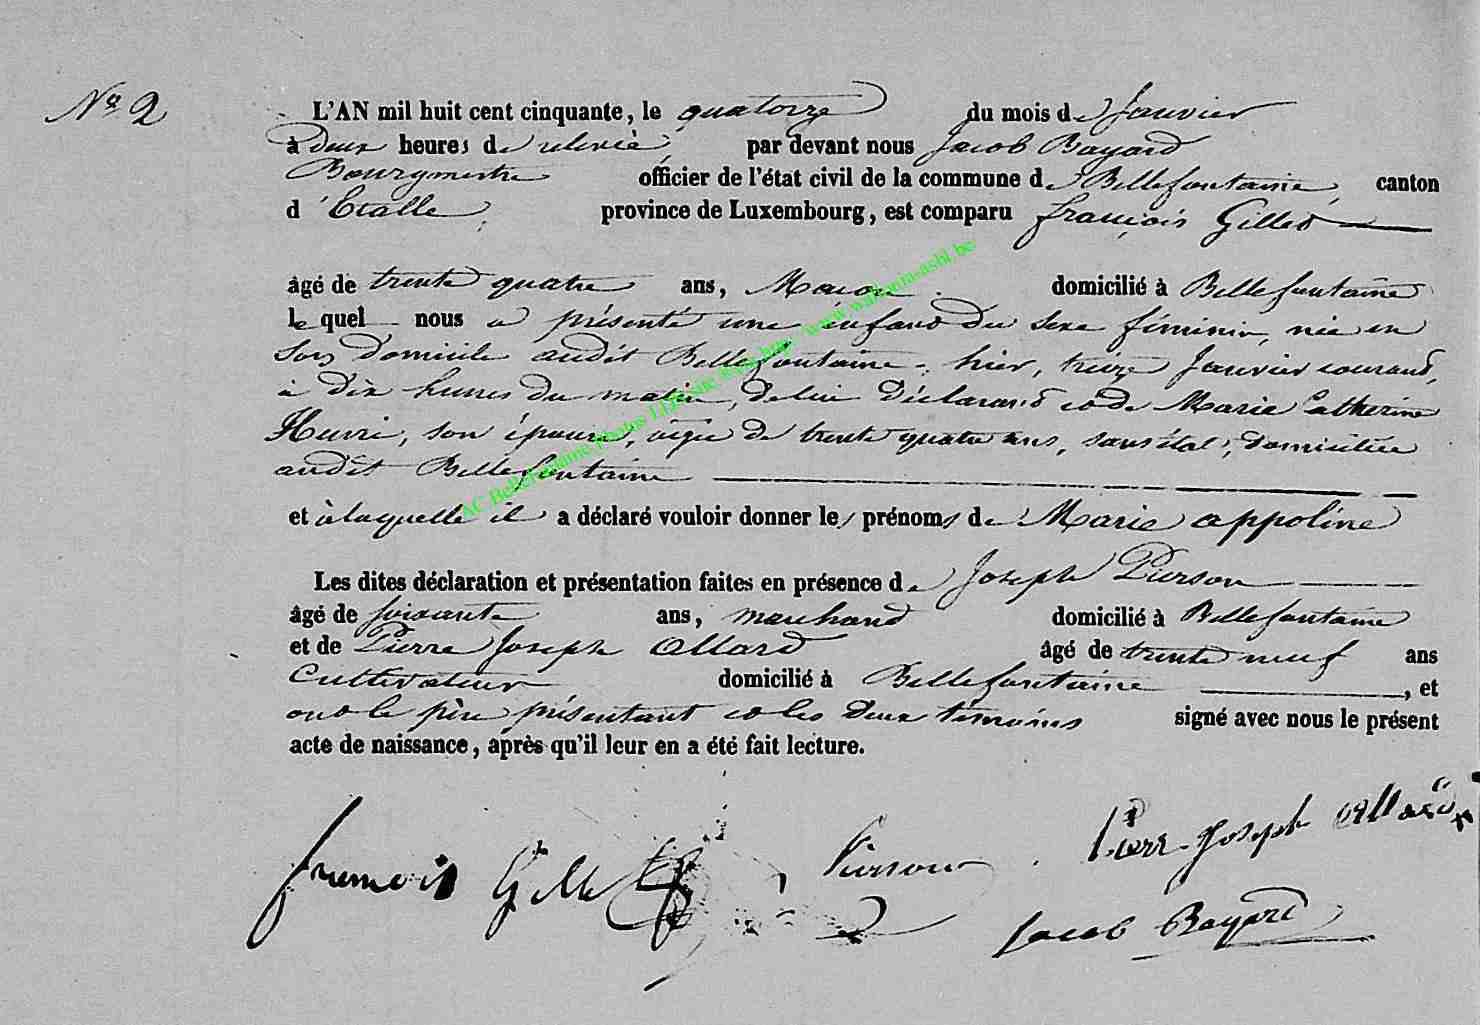 N° 2
L'AN mil huit cent cinquante, le quatorze du mois de Janvier
à deux heures de relevée par devant nous Jacob Bayard
Bourgmestre officier de l'état civil de la commune de Bellefontaine, canton
d'Etalle, province de Luxembourg, est comparu françois Gilles
âgé de trente quatre ans, Macon domicilié à Bellefontaine
lequel nous a présenté une enfant du sexe féminin, née en
son domicile audit Bellefontaine, hier, treize Janvier courant,
à dix heures du matin, de lui déclarant et de Marie Catherine
Henri, son épouse, agée de trente quatre ans, sans état, domiciliée
audit Bellefontaine
et à laquelle il a déclaré vouloir donner les prénoms de Marie appoline
Les dites déclaration et présentation faites en présence de Joseph Pierson
âgé de soixante ans, marchand domicilié à Bellefontaine
et de Pierre Joseph Allard âgé de trente neuf ans
Cultivateur domicilié à Bellefontaine, et
ont le père présentant et les deux témoins signé avec nous le présent
acte de naissance, après qu'il leur en a été fait lecture.
francois Gilles Pierson Pierr Joseph allard
Jacob Bayard